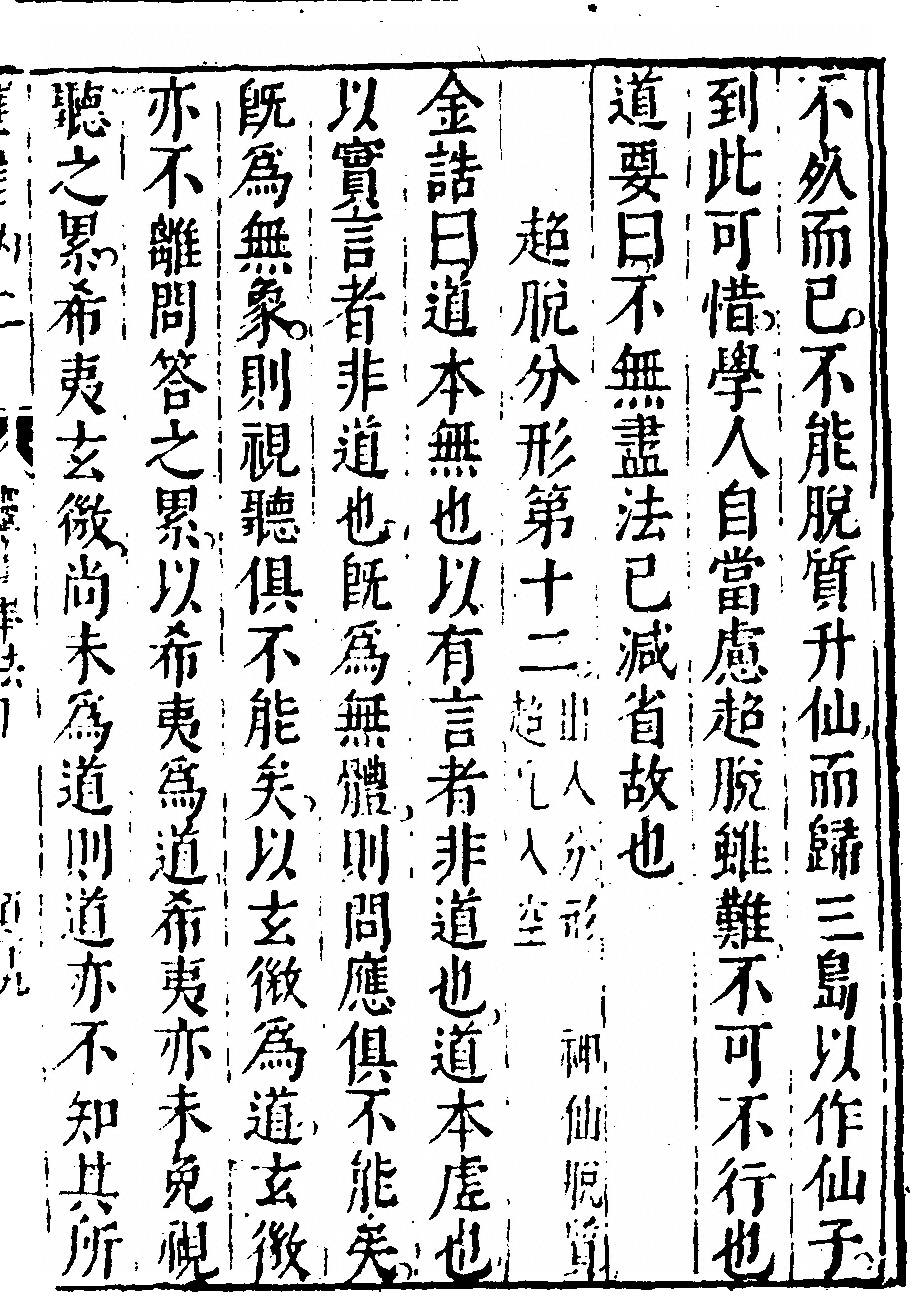 不然而已不能脫質升仙而歸三島以作仙子
到此可惜學人自當慮超脫雖難不可不行也
道要曰不無盡法已減省故也
超脫分形第十二
出入分形
神仙脫質
超凡入空
金誥曰道本無也以有言者非道也道本虛也
以實言者非道也旣爲無體則問應俱不能矣
旣爲無象則視聽俱不能矣以玄微爲道玄微
亦不離問答之累以希夷爲道希夷亦未免視
聽之累希夷玄微尚未爲道則道亦不知其所